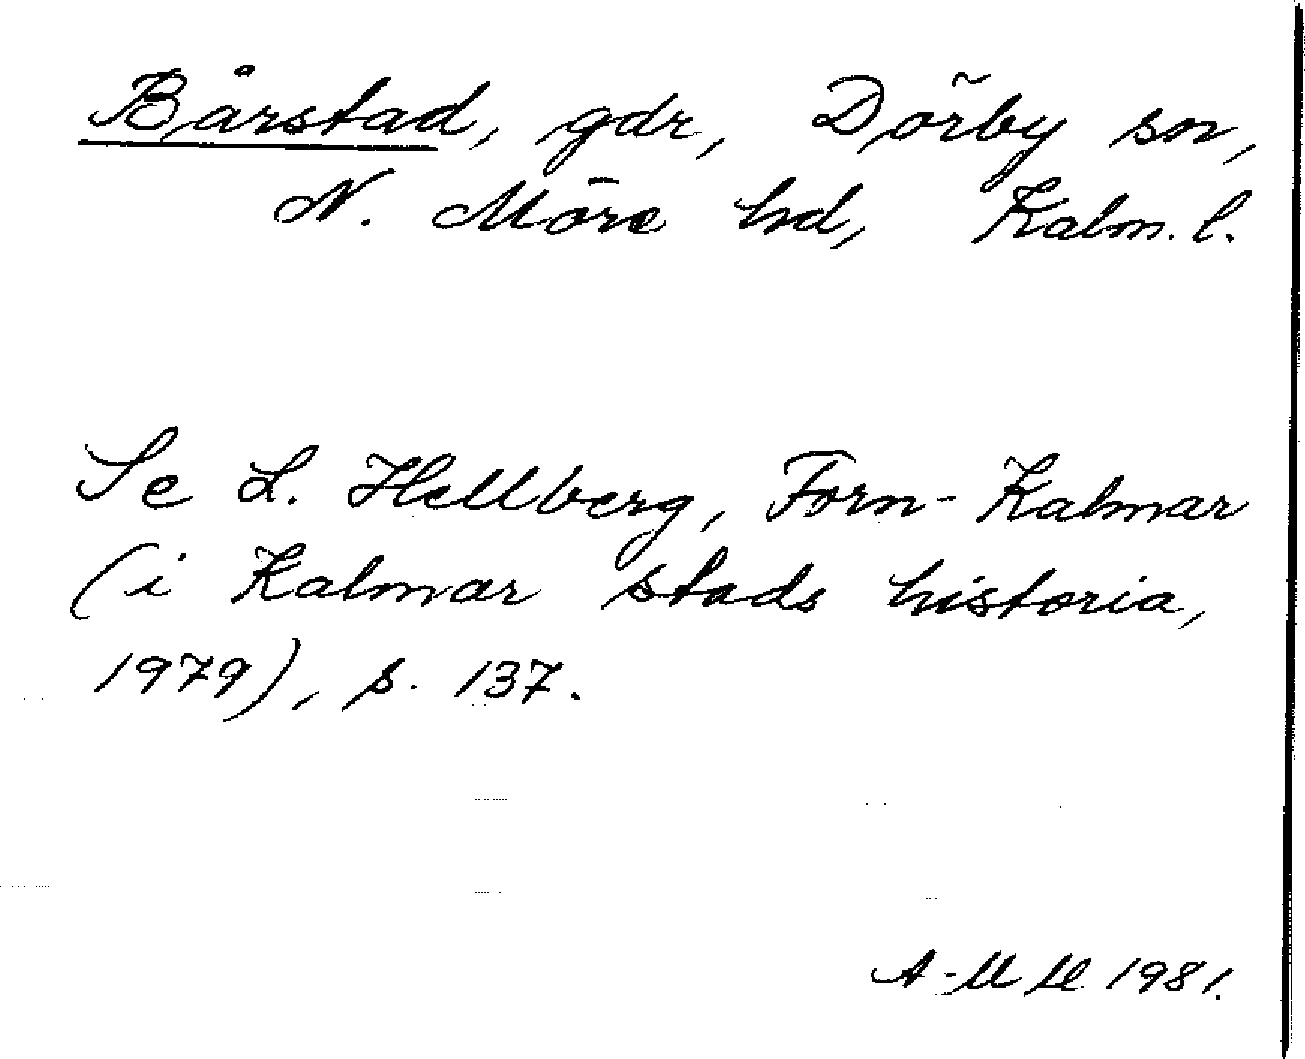 Bårstad, gdr, Dörby sn,
N. Möre hd, Kalm. l.
Se L. Hellberg, Forn-Kalmar
(i Kalmar stads historia,
1979), s. 137.
1981.